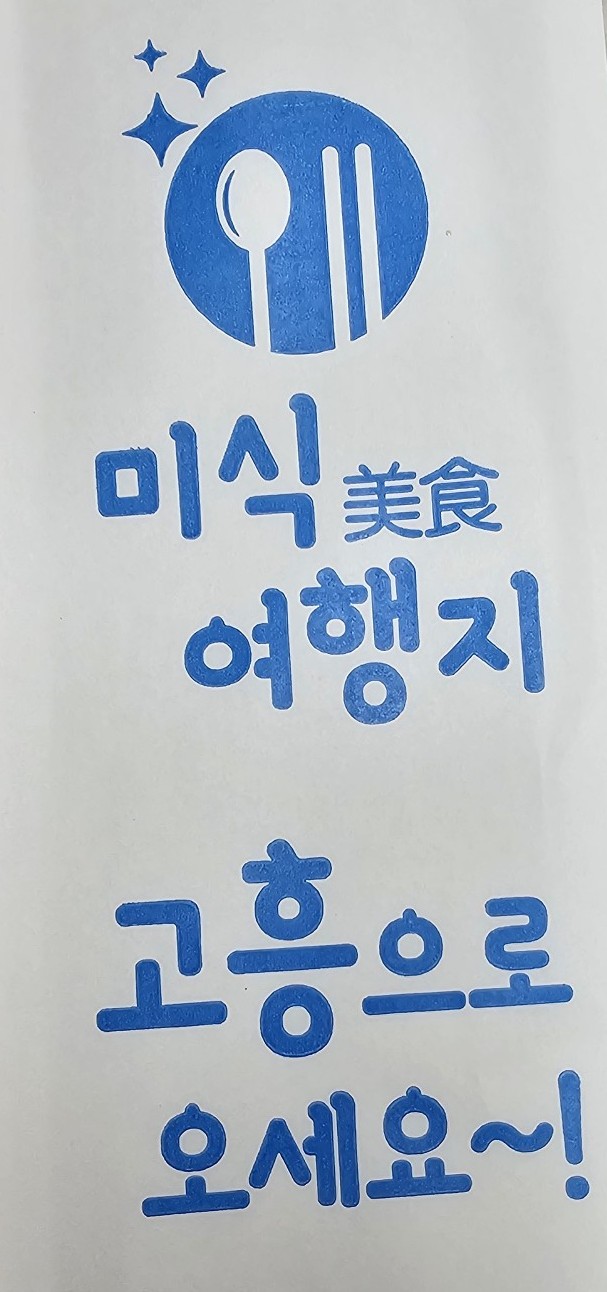 미식 美食
여행지
고흥으로
오세요~!